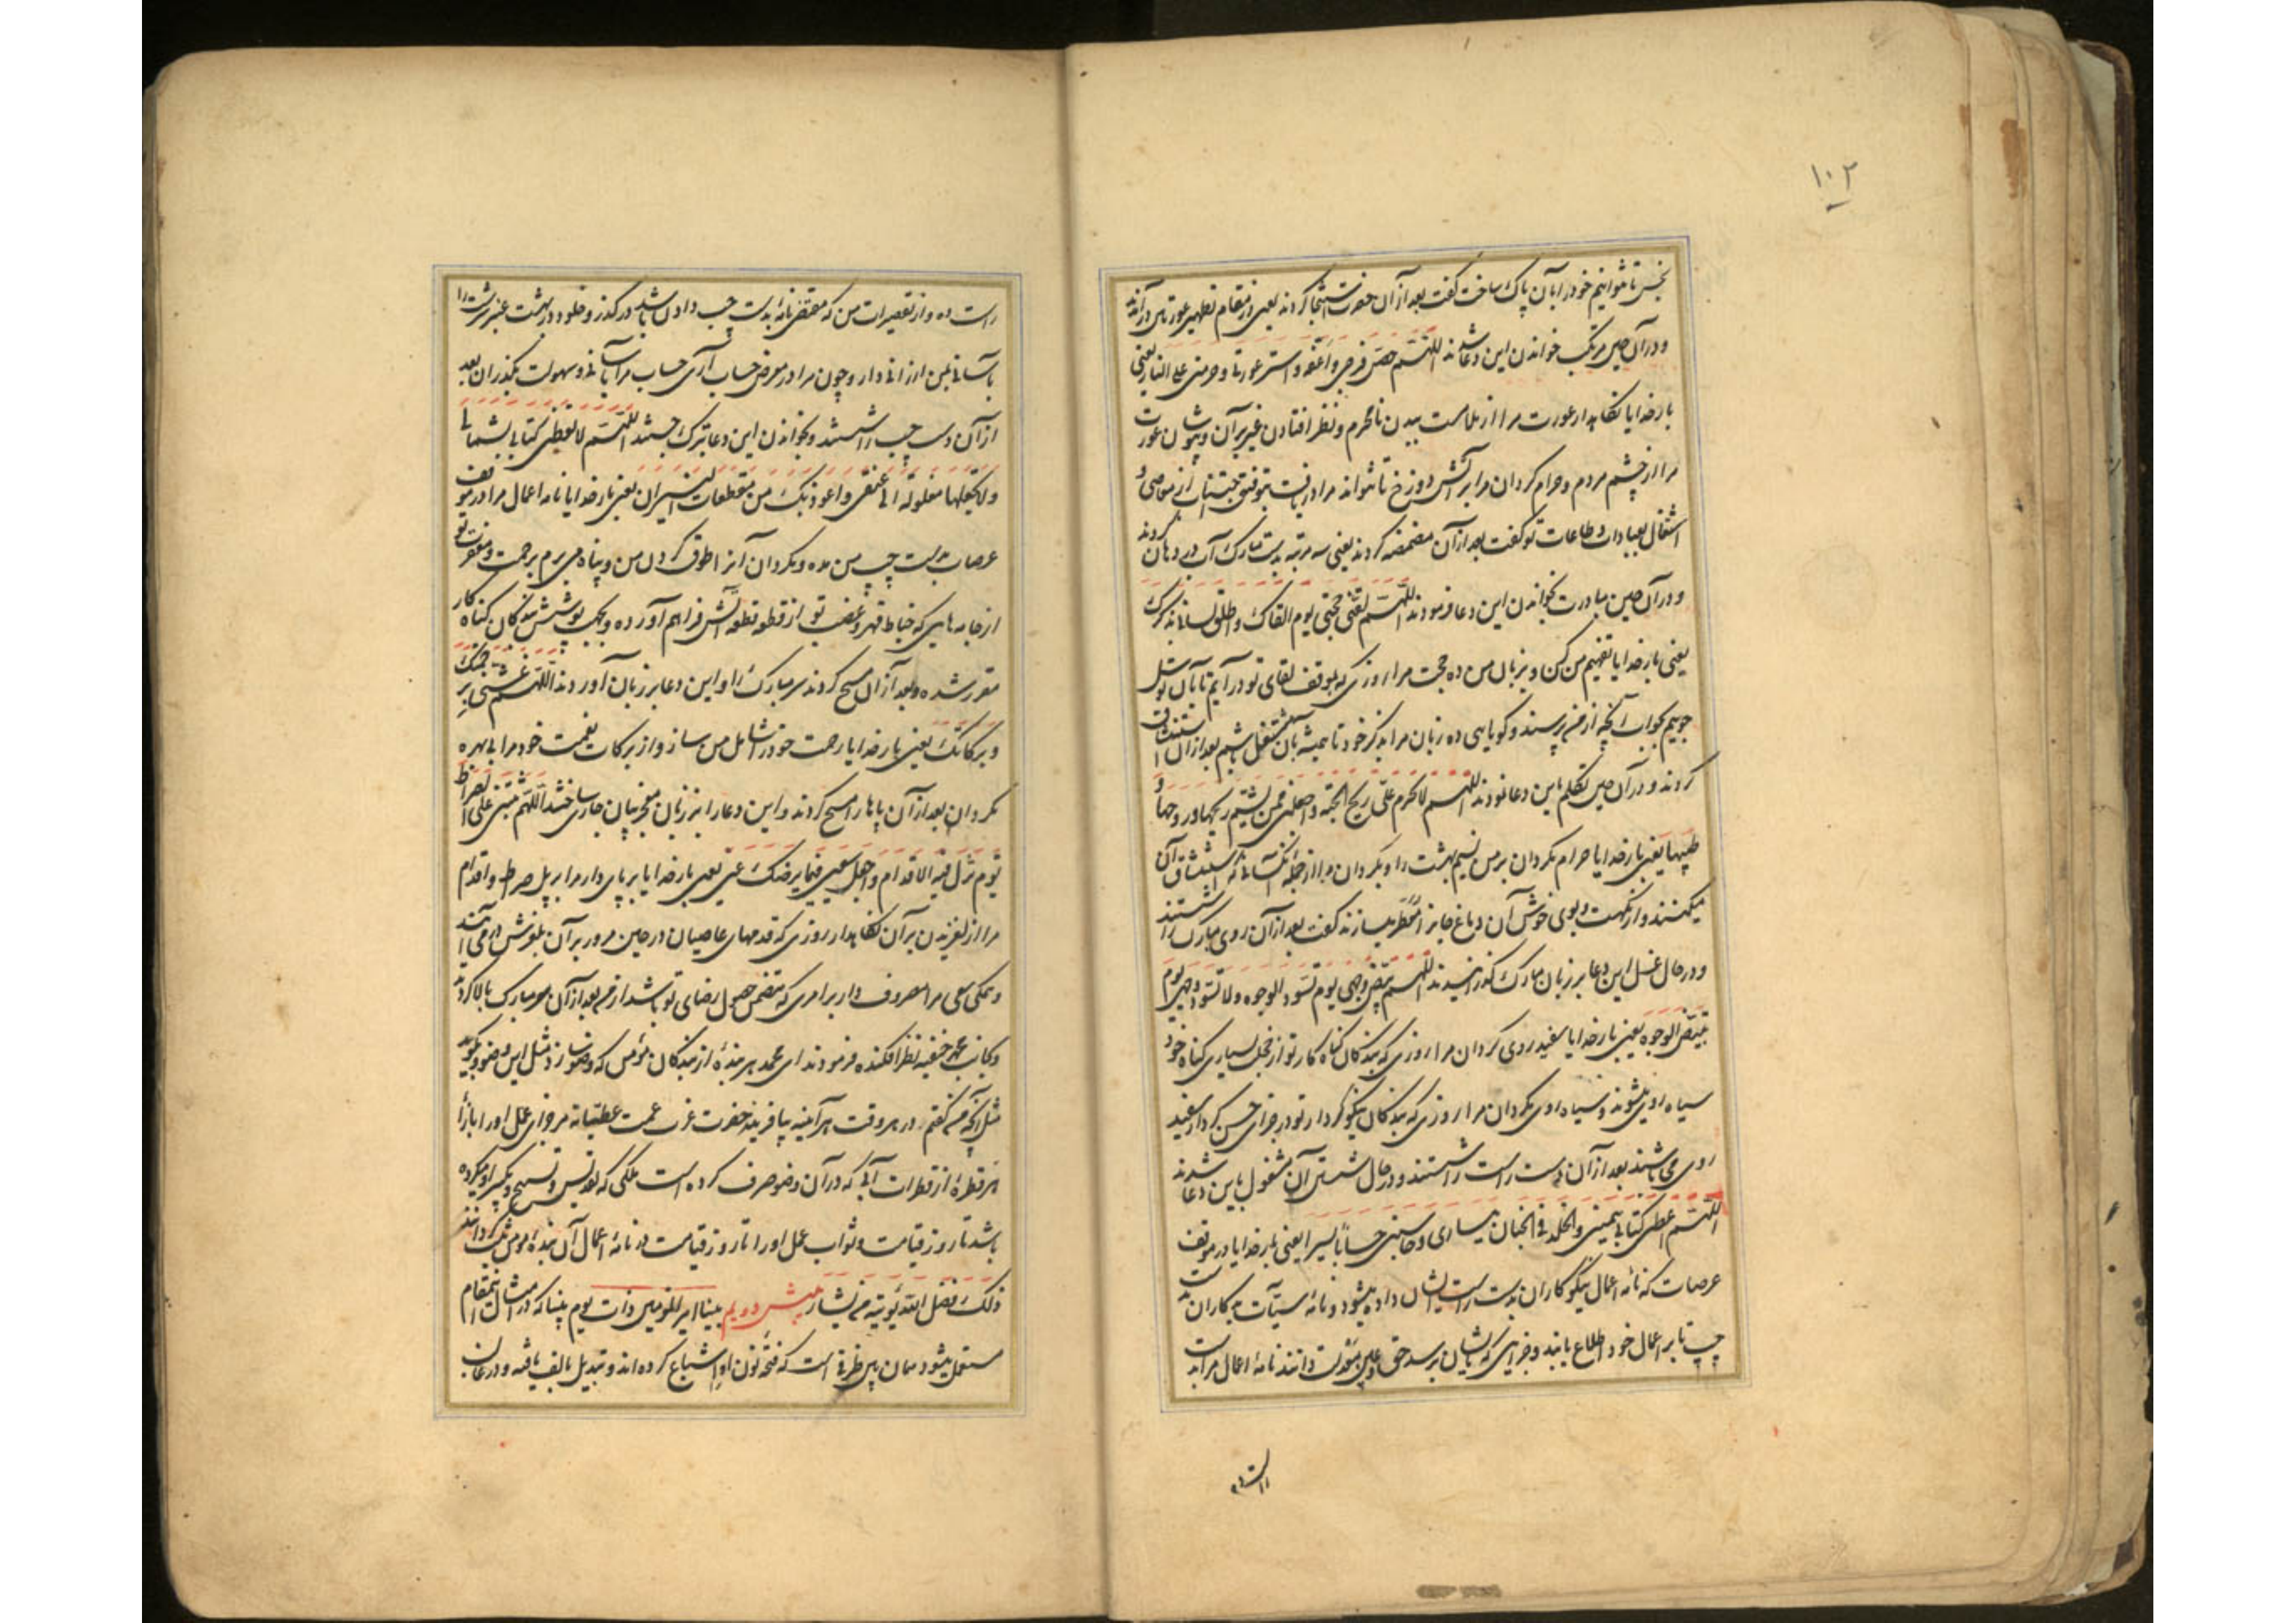 ۱۰۲
نجس تا توانیم خود را بآن پاک ساخت گفت بعد از آن حضرت استنجا کردند یعنی در مقام تطهیر عورتین درآمدند
و در آن حین مرتکب خواندن این دعا شدند اللهم حصّن فرجی و اعفه و استر عورتی و حرمنی علی النار یعنی
بار خدایا نگاهدار عورت مرا از ملامست بیدن نامحرم و نظر افتادن غیر بر آن و بپوشان عورت
مرا از چشم مردم و حرام گردان مرا بر آتش دوزخ تا نتواند مرا دریافت بتوفیق اجتناب از معاصی و
اشتغال بعبادات و طاعات تو گفت بعد از آن مضمضه کردند یعنی سه مرتبه بدست مبارک آب در دهان کردند
و در آن حین مبادرت بخواندن این دعا فرمودند اللهم لقنی حجتی یوم القاک و اطلق لسانی بذکرک
یعنی بار خدایا تفهیم من کن و بر زبان من ده حجت مرا روزی که بموقف لقای تو درآیم تا بآن توسل
جویم بجواب آنچه از من پرسند و گویایی ده زبان مرا بذکر خود تا همیشه بآن مشتغل باشم بعد از آن استنشاق
کردند و در آن حین تکلم باین دعا نمودند اللهم لا تحرم علیّ ریح الجنة و اجعلنی ممن یشتم ریحها و روحها و
طیبها یعنی بار خدایا حرام مگردان بر من نسیم بهشت را و بگردان مرا از جمله آنکسانی که استنشاق آن
میکنند و از نکهت و بوی خوش آن دماغ جانرا معطر میسازند گفت بعد از آن روی مبارک را شستند
و در حال غسل این دعا بر زبان مبارک گذرانیدند اللهم بیّض وجهی یوم تسود الوجوه و لا تسود وجهی یوم
تبیض الوجوه یعنی بار خدایا سفید روی گردان مرا روزی که بندگان گناه کار تو از خجل بسیاری گناه خود
سیاه روی میشوند و سیاه روی مگردان مرا روزی که بندگان نیکو کردار تو در جزای حسن کردار سفید
روی می باشند بعد از آن دست راست را شستند و در حال شستن آن مشغول باین دعا شدند
اللهم اعطنی کتابی بیمینی و الخلد فی الجنان بیساری و حاسبنی حسابا یسیرا یعنی بار خدایا در موقف
عرصات که نامه اعمال نیکو کاران بدست راست ایشان داده میشود و نامه سیئات بدکاران بدست
چپ تا بر اعمال خود اطلاع یابند و جزایی که بایشان برسد حق و عین معدلت دانند نامه اعمال مرا بدست
راست
راست ده و از تقصیرات من که مقتضی نامه بدست چپ دادن باشد درگذر و خلود در بهشت عنبر سرشت را
بآسانی بمن ارزانی دار و چون مرا در معرض حساب آری حساب مرا بآسانی و سهولت بگذران بعد
از آن دست چپ را شستند و بخواندن این دعا تبرک جستند اللهم لا تعطنی کتابی بشمالی
و لا تجعلها مغلولة الی عنقی و اعوذ بک من مقطعات النیران یعنی بار خدایا نامه اعمال مرا در موقف
عرصات بدست چپ من مده و مگردان آنرا طوق گردن من و پناه می برم برحمت و مغفرت تو
از جامه هایی که خیاط قهر و غضب تو از قطعه قطعه آتش فراهم آورده و بجهت پوشش بندگان گناه کار
مقرر شده و بعد از آن مسح کردند سر مبارک را و این دعا بر زبان آوردند اللهم غشنی برحمتک
و برکاتک یعنی بار خدایا رحمت خود را شامل من ساز و از برکات نعمت خود مرا بی بهره
مگردان بعد از آن پاها را مسح کردند و این دعا را بر زبان معجز بیان جاری ساختند اللهم ثبتنی علی الصراط
یوم تزل فیه الاقدام و اجعل سعیی فیما یرضیک عنی یعنی بار خدایا بر پای دار مرا بر پل صراط و اقدام
مرا از لغزیدن بر آن نگاهدار روزی که قدمهای عاصیان در حین مرور بر آن بلغزش درمی آیند
و همگی سعی مرا مصروف دار بر امری که متضمن حصول رضای تو باشد از من بعد از آن سر مبارک بالا کردند
و بجانب محمد حنفیه نظر افکنده فرمودند ای محمد هر بنده از بندگان مؤمن که وضو سازد مثل این وضو و بگوید
مثل آنچه من گفتم در هر وقت هر آینه بیافریند حضرت عزت عمت عطیاته مر جزای عمل او را بازاء
هر قطره از قطرات آبی که در آن وضو صرف کرده است ملکی که تقدیس و تسبیح و تکبیر او میکرده
باشد تا روز قیامت و ثواب عمل او را تا روز قیامت در نامه اعمال آن بنده مؤمن ثبت گرداند
ذلک فضل الله یؤتیه من یشاء بینا امیر المؤمنین ذات یوم بینا که در امثال این مقام
مستعمل میشود همان بین ظرفی است که فتحه نون او را اشباع کرده اند و تبدیل بالف یافته و در غالب